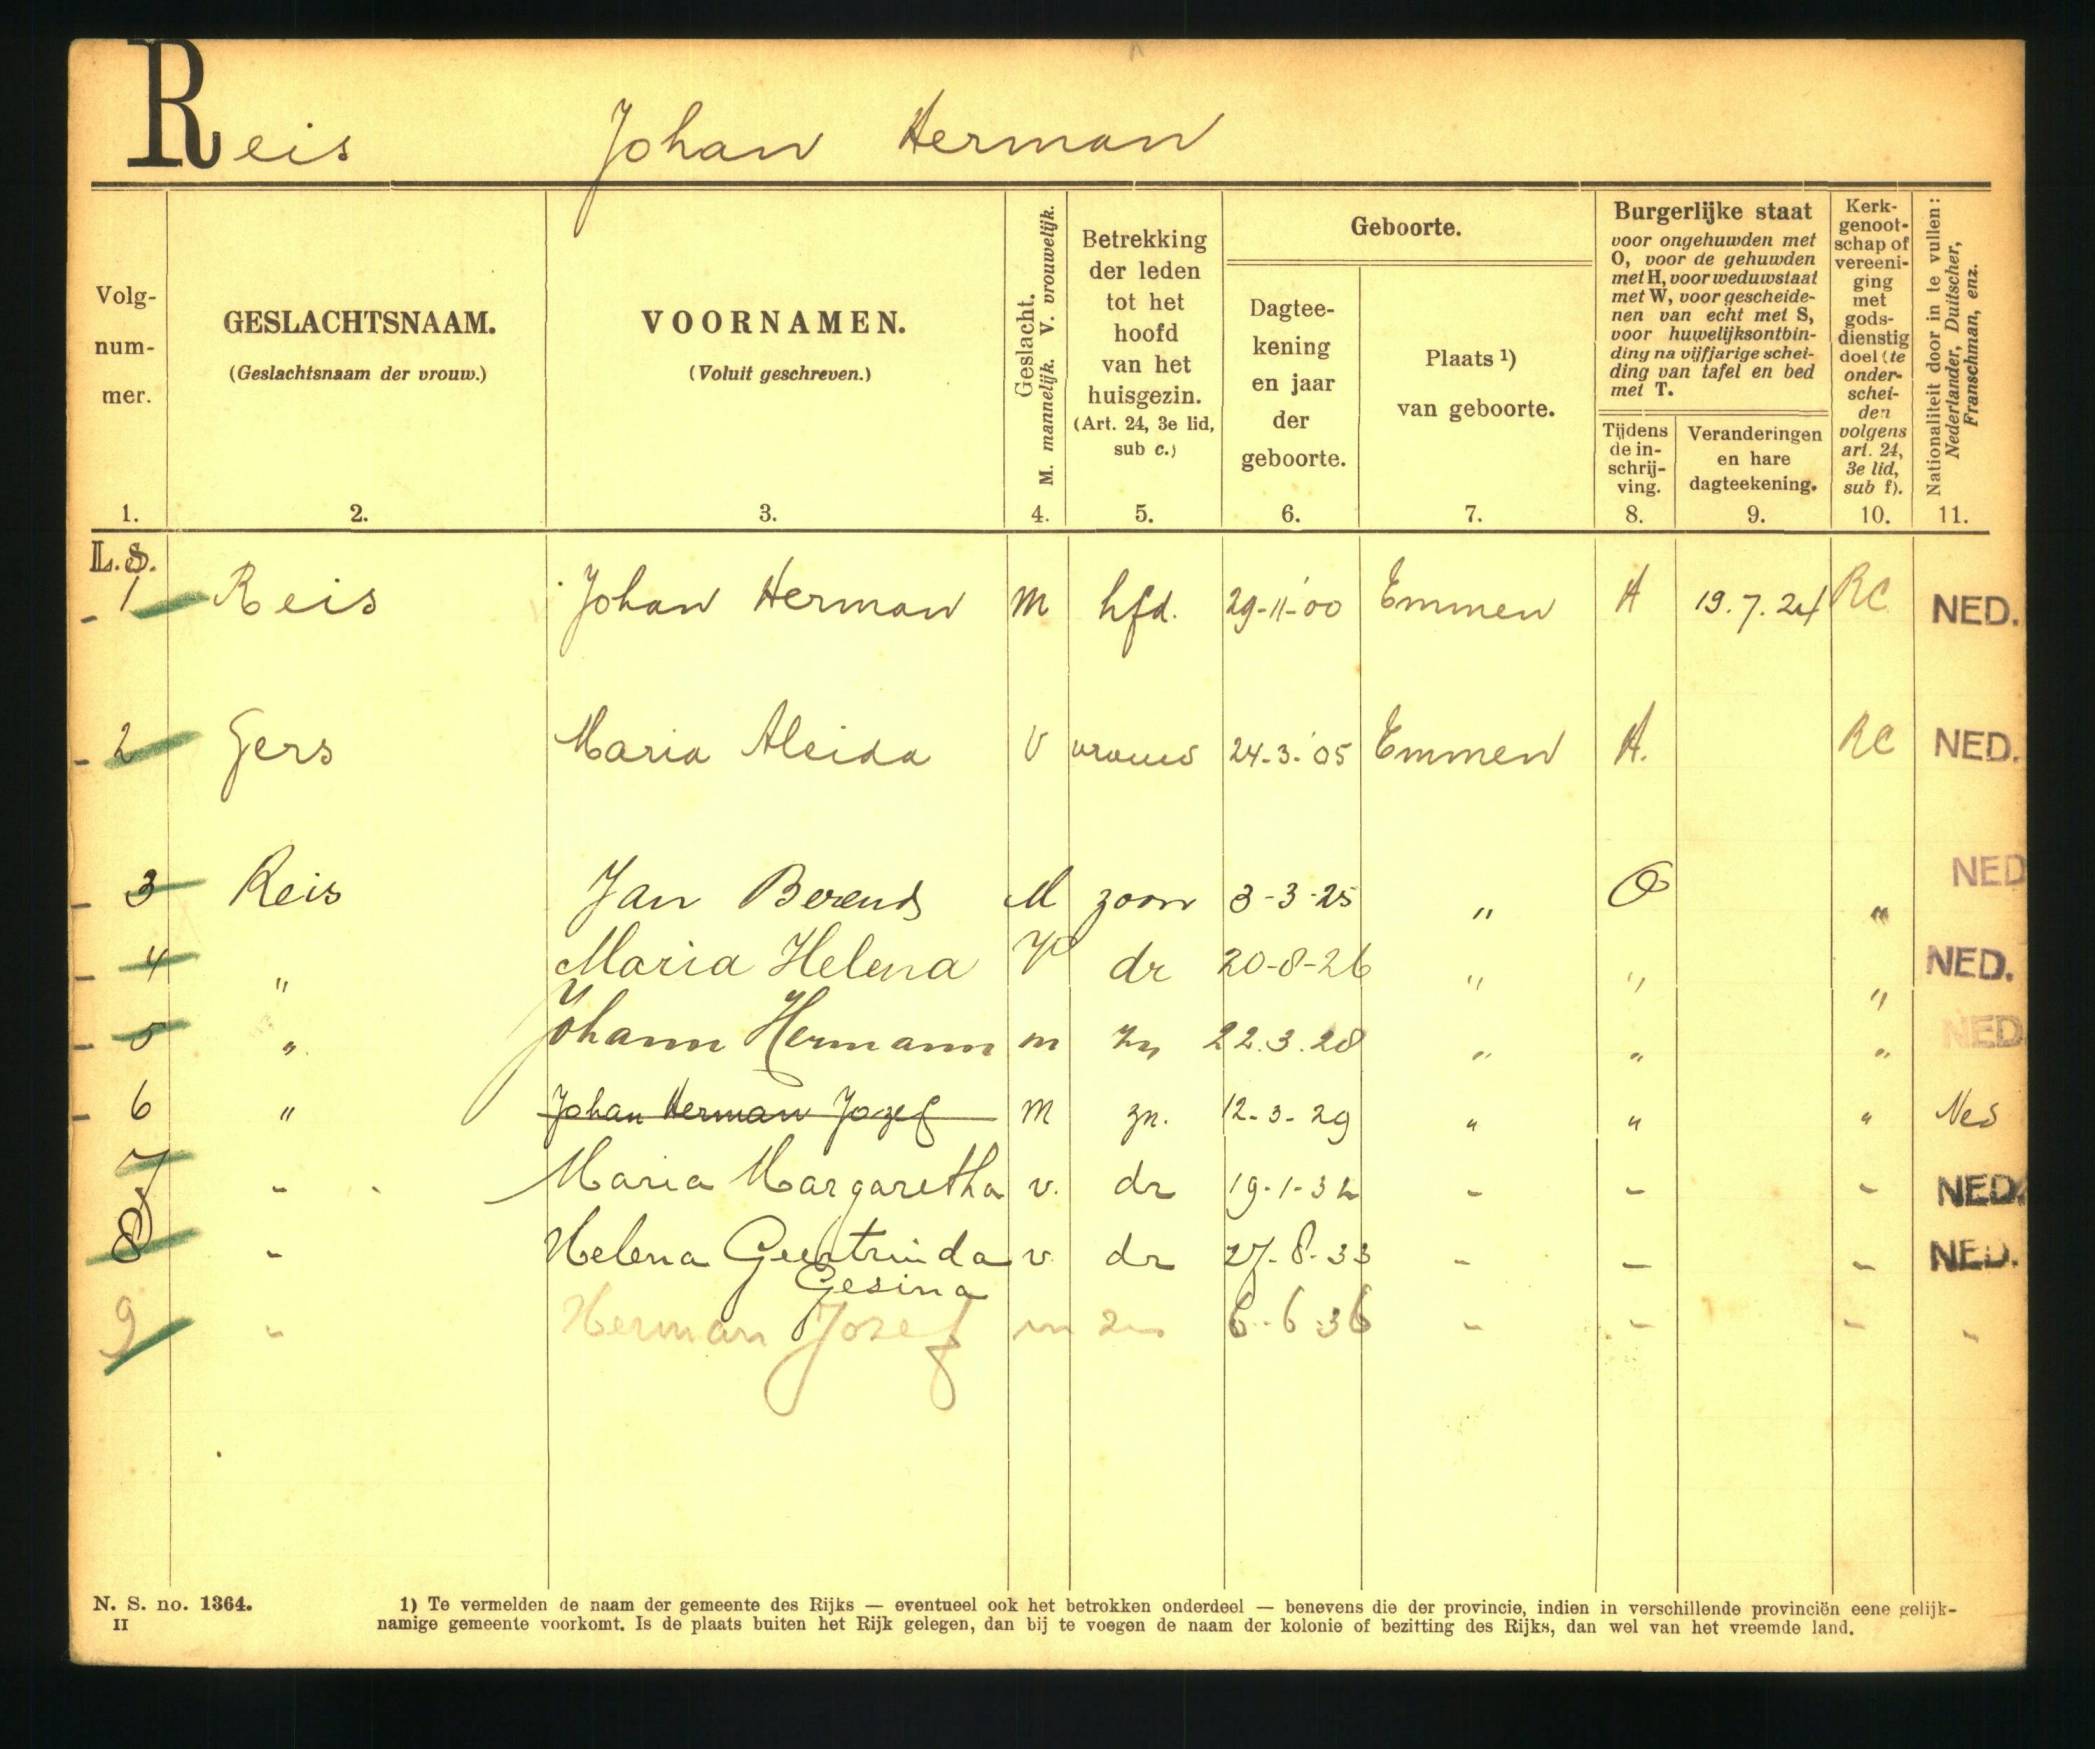 Reis Johan Herman
Volg-
num-
mer.
1.
GESLACHTSNAAM.
(Geslachtsnaam der vrouw.)
2.
VOORNAMEN.
(Voluit geschreven.)
3.
Geslacht.
M. mannelijk. V. vrouwelijk.
4.
Betrekking
der leden
tot het
hoofd
van het
huisgezin.
(Art. 24, 3e lid,
sub c.)
5.
Geboorte.
Dagtee-
kening
en jaar
der
geboorte.
6.
Plaats ¹)
van geboorte.
7.
Burgerlijke staat
voor ongehuwden met
O, voor de gehuwden
met H, voor weduwstaat
met W, voor gescheide-
nen van echt met S,
voor huwelijksontbin-
ding na vijfjarige schei-
ding van tafel en bed
met T.
Tijdens
de in-
schrij-
ving.
8.
Veranderingen
en hare
dagteekening.
9.
Kerk-
genoot-
schap of
vereeni-
ging
met
gods-
dienstig
doel (te
onder-
schei-
den
volgens
art. 24,
3e lid,
sub f).
10.
Nationaliteit door in te vullen:
Nederlander, Duitscher,
Franschman, enz.
11.
L.S.
1 Reis Johan Herman M hfd. 29-11-'00 Emmen H 19.7.24 RC NED.
2 Gers Maria Aleida V vrouw 24-3-'05 Emmen H. RC NED.
3 Reis Jan Berends M zoon 3-3-25 " O " NED
4 " Maria Helena V dr 20-8-26 " " " NED.
5 " Johann Hermann m zn 22.3.28 " " " NED
6 " Johan Herman Jozef M zn. 12-3-29 " " " Ned
7 - Maria Margaretha v. dr 19-1-32 - - - NED.
8 - Helena Geertruida v. dr 27-8-33 - - - NED.
Gesina
9 - Herman Jozef m zn 6-6-36 - - - -
N. S. no. 1364.
II
1) Te vermelden de naam der gemeente des Rijks — eventueel ook het betrokken onderdeel — benevens die der provincie, indien in verschillende provinciën eene gelijk-
namige gemeente voorkomt. Is de plaats buiten het Rijk gelegen, dan bij te voegen de naam der kolonie of bezitting des Rijks, dan wel van het vreemde land.